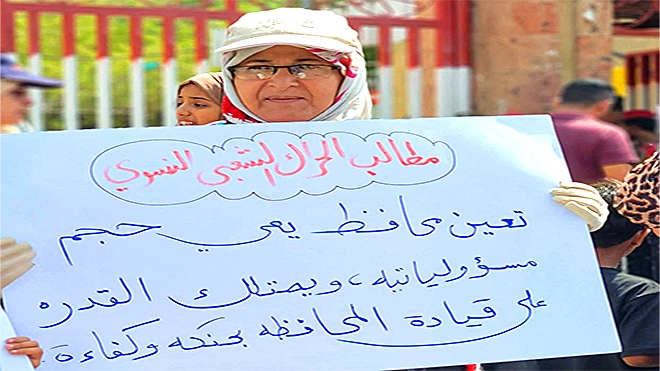 مطالب الحراك الشعبي النسوي
تعين محافظ يعي حجم
مسؤولياته، ويمتلك القدره
على قيادة المحافظه بحنكه وكفاءة